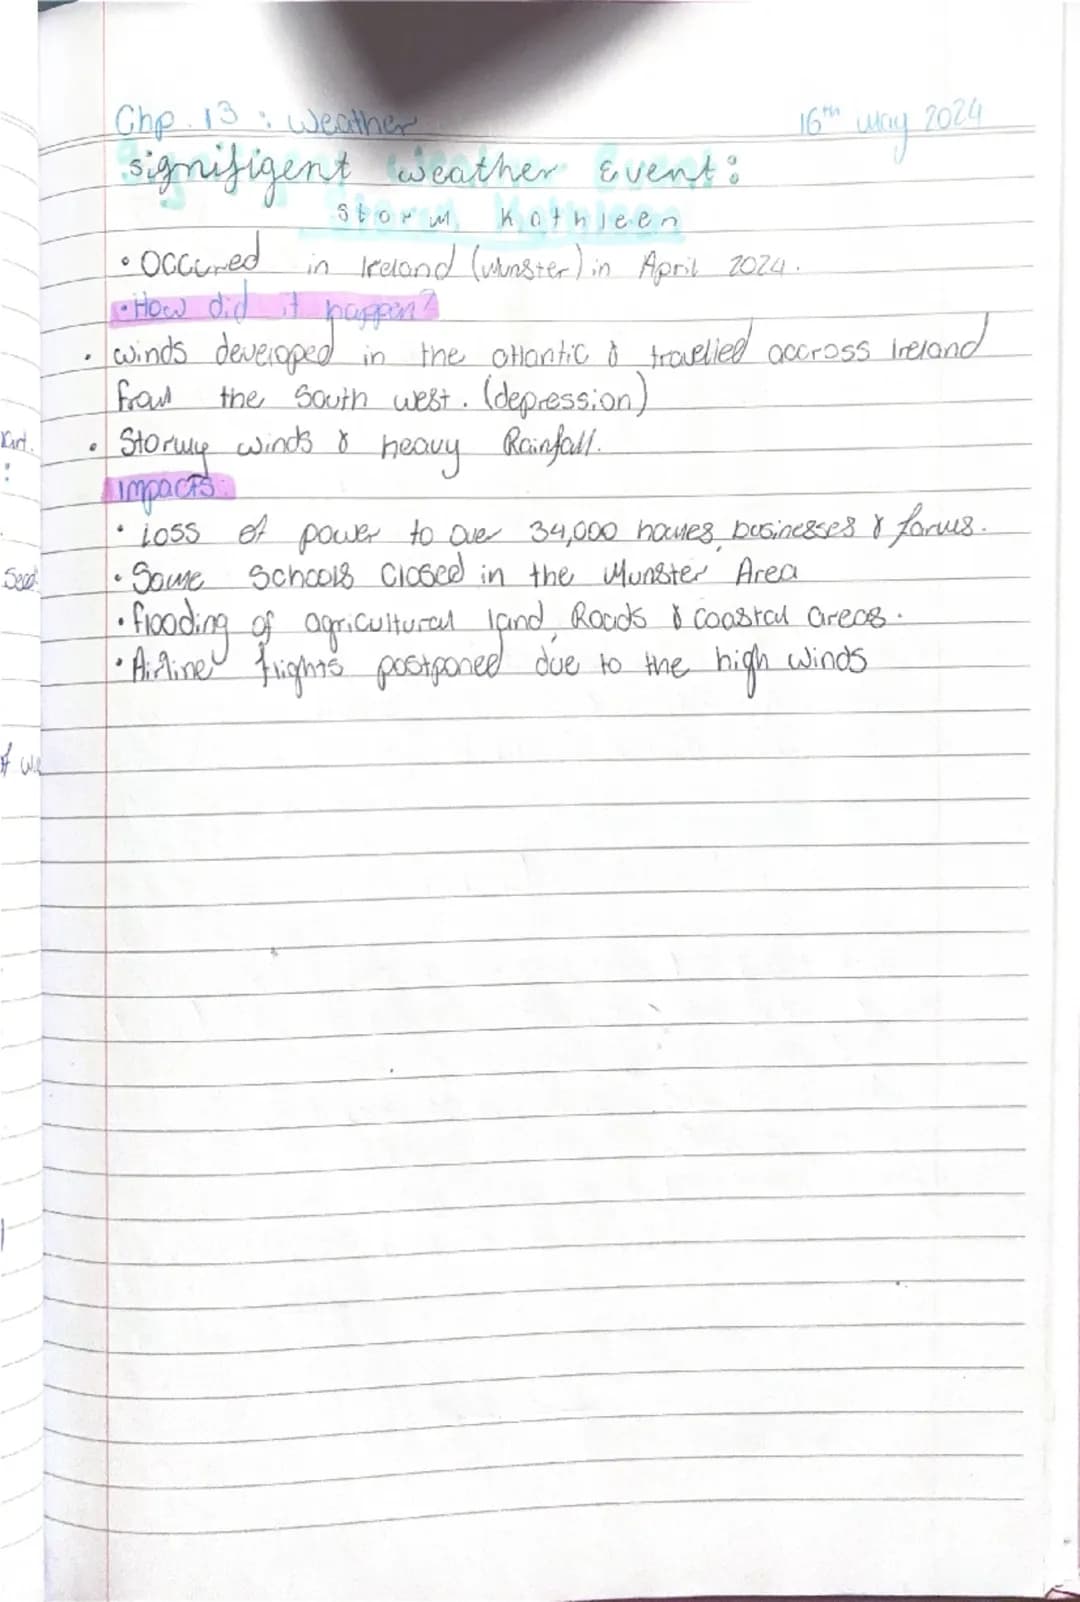 Chp. 13 : Weather 16th May 2024
signifigent weather Event:
Storm Kathleen
• Occured in Ireland (Munster) in April 2024.
• How did it happen?
• winds developed in the atlantic & travelled accross Ireland
from the South west. (depression)
• Stormy winds & heavy Rainfall.
Impacts:
• Loss of power to over 34,000 homes, businesses & farms.
• Some Schools Closed in the Munster Area
• flooding of agricultural land, Roads & coastal areas.
• Airline flights postponed due to the high winds
Seed